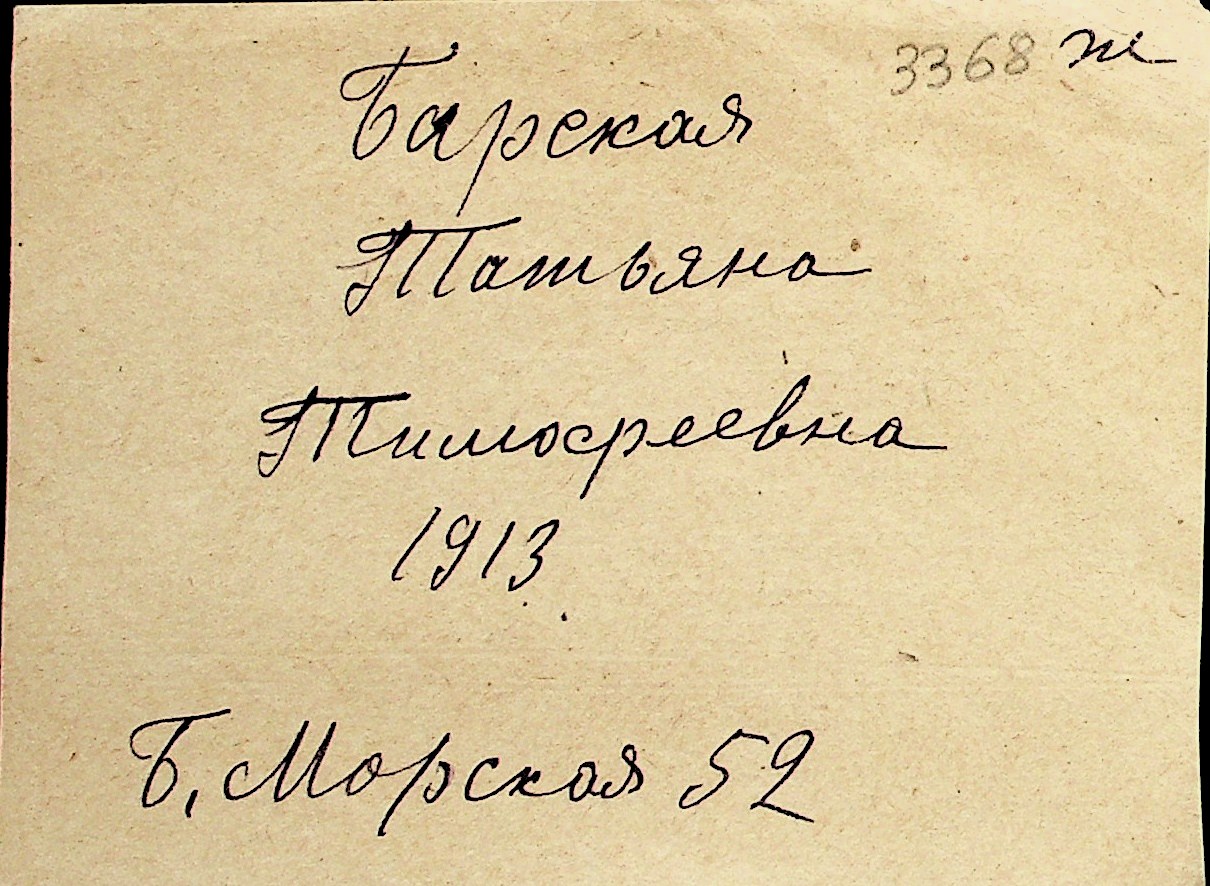 3368 ж
Барская
Татьяна
Тимофеевна
1913
Б. Морская 52